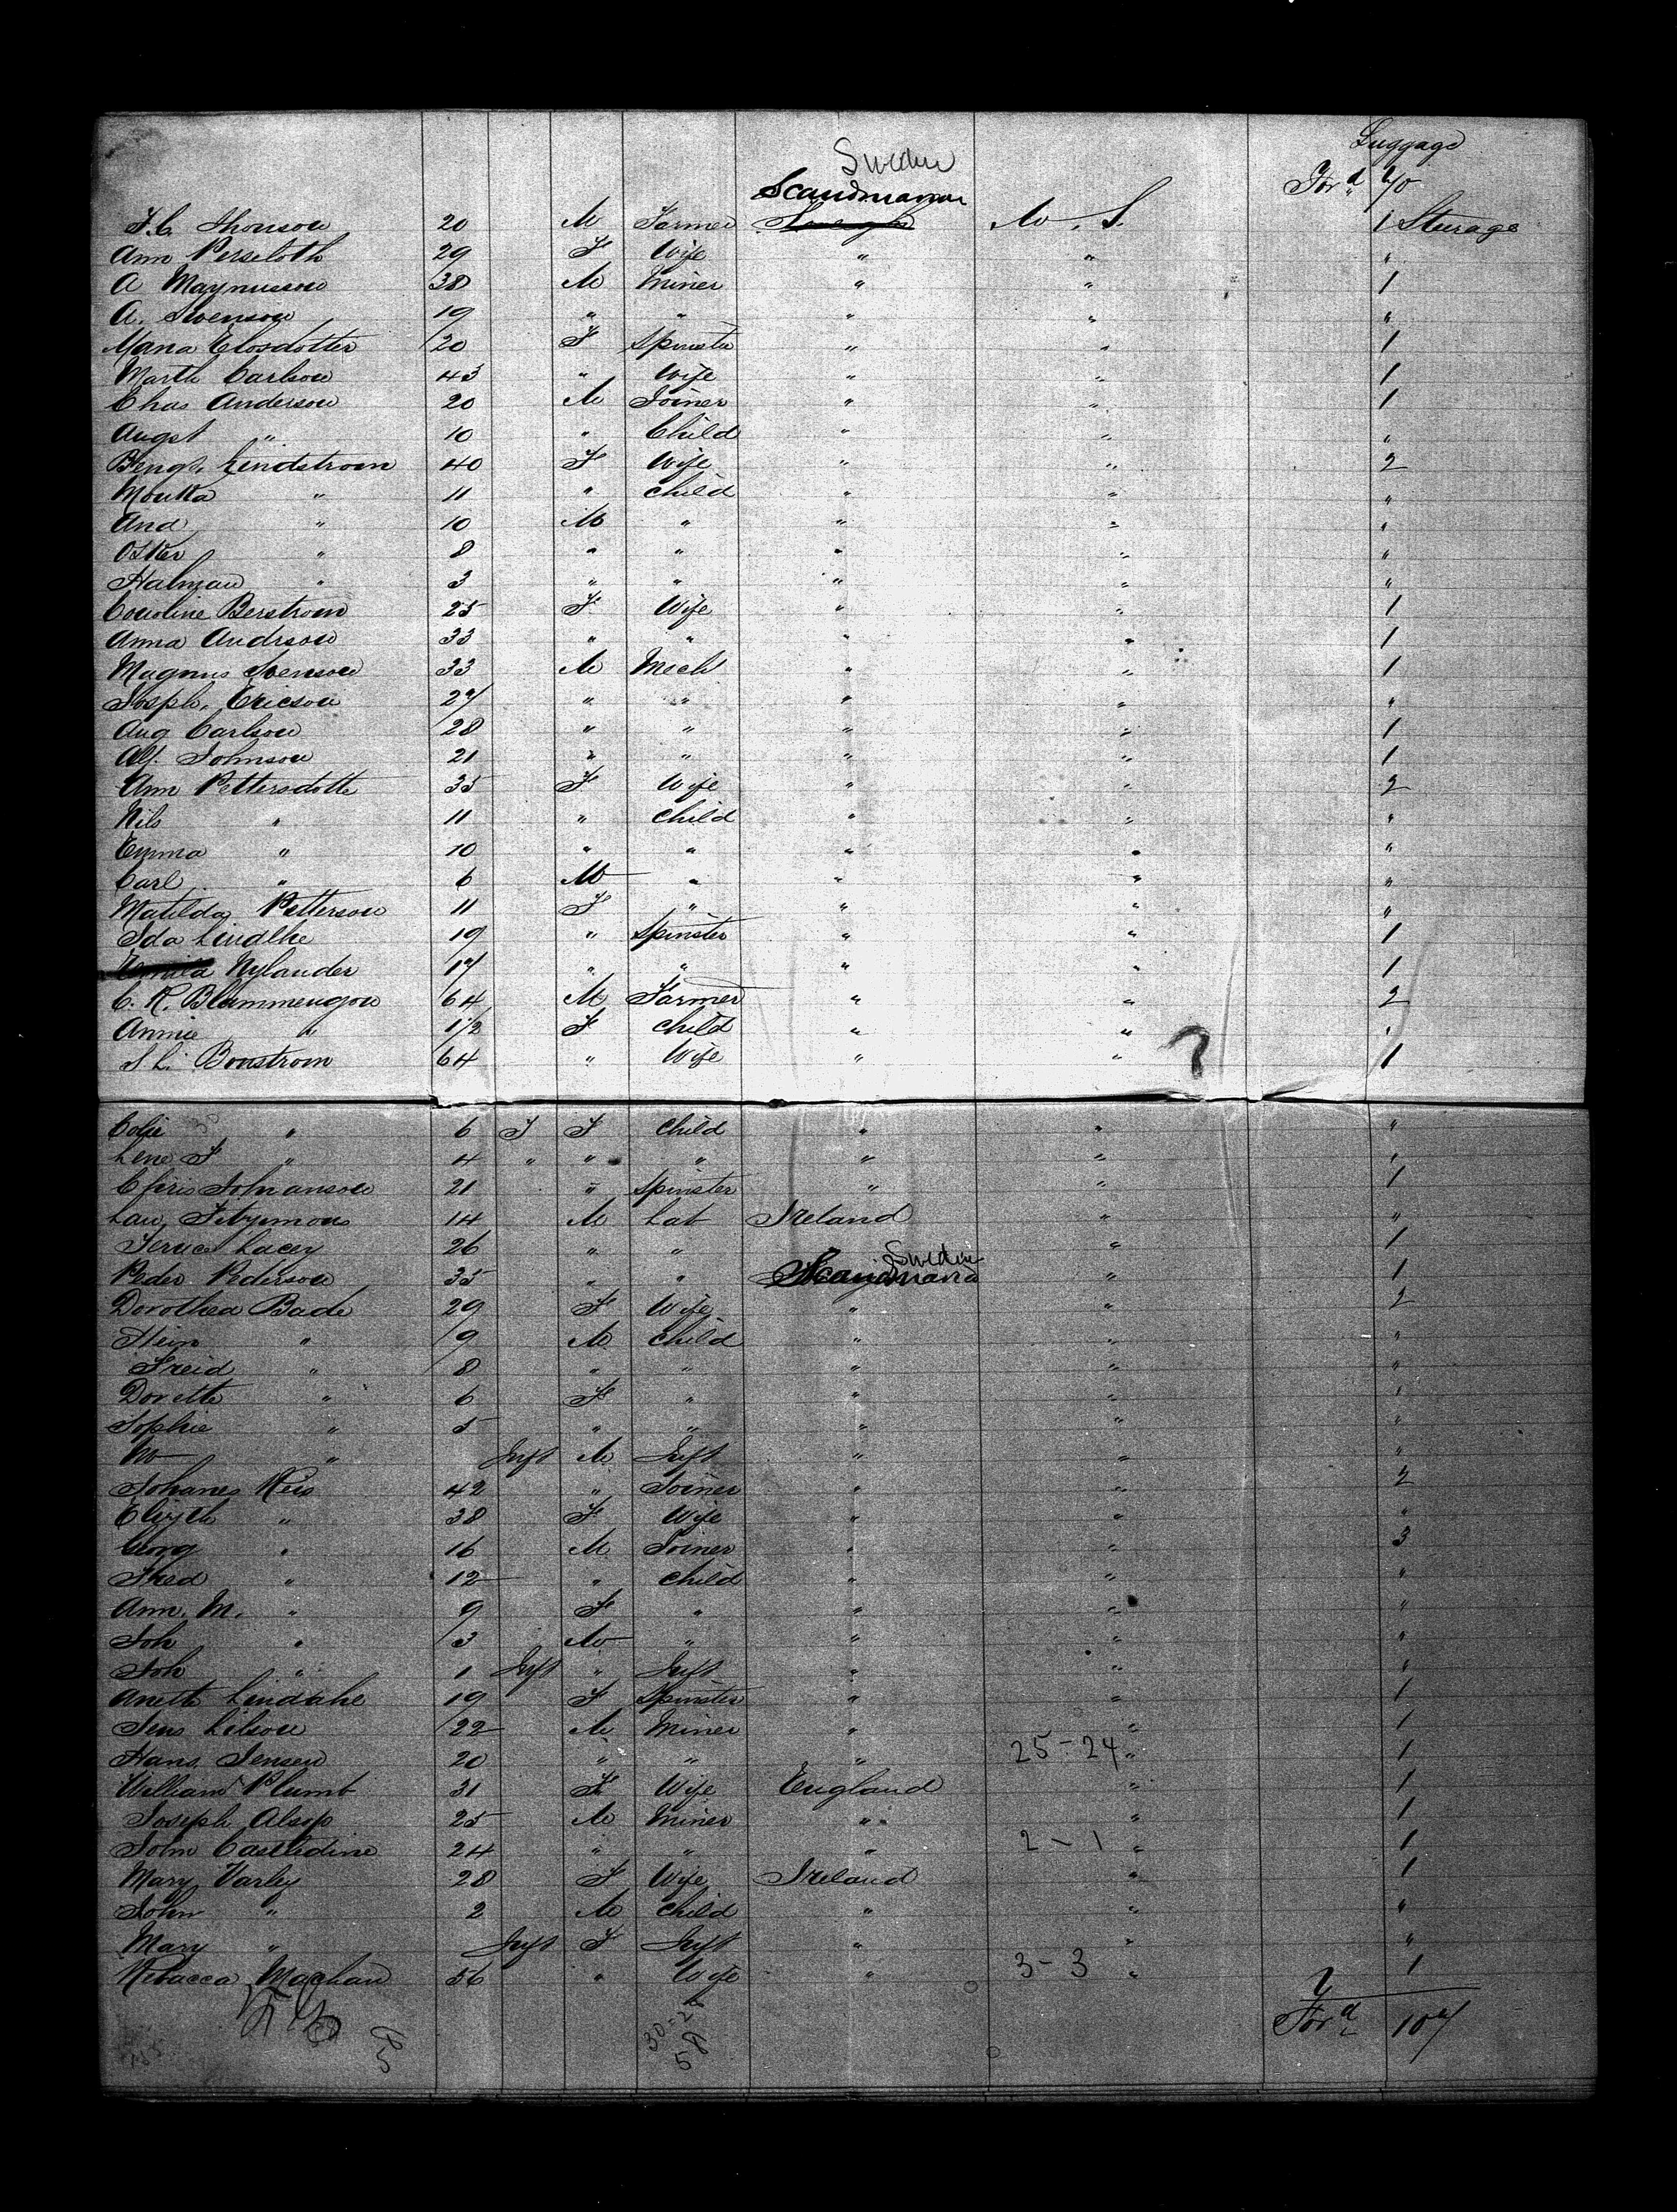 Luggage
Sweden
Scandinavian
For.d 70
F. C. Thonson 20 M Farmer U. S. 1 Steerage
Ann Perseloth 29 F Wife " " "
A Maynusson 38 M Miner " " 1
A. Svenson 19 " " " " "
Mana Elosdotter 20 F Spinster " " 1
Marth Carlson 43 " Wife " " 1
Chas Anderson 20 M Joiner " " 1
Augst " 10 " Child " " "
Bengt. Lindstrom 40 F Wife " " 2
" 11 " Child " " "
And " 10 M " " " "
Osker " 8 " " " " "
Halman " 3 " " " " "
Caroline Berstrom 25 F Wife " " 1
Anna Andrson 33 " " " " 1
Magnus Svenson 33 M Mech " " 1
Joseph. Ericson 27 " " " " "
Aug Carlson 28 " " " " 1
Alf. Johnson 21 " " " " 1
Ann Pettersdotte 35 F Wife " " 2
Nils " 11 " Child " " "
Emma " 10 " " " " "
Carl " 6 M " " " "
Matilda Petterson 11 F " " " "
Ida Lindlhe 19 " Spinster " " 1
Nylander 17 " " " " 1
C. R. Blammengon 64 M Farmer " " 2
Annie " 1/2 F Child " " "
S. L. Bonstrom 64 " Wife " " ? 1
" 6 F F Child " " "
Lene F " 4 " " " " " "
Chris Johanson 21 " Spinster " " 1
Law. Fitzymons 14 M Lab Ireland " "
Lacey 26 " " " 1
Sweden
Peder Pederson 35 " " Scandinavia " 1
Dorothea Bade 29 F Wife " " 2
Hein " 9 M Child " " "
Freid " 8 " " " " "
Dorette " 6 F " " " "
Sophie " 5 " " " " "
" Inft M Inft " " "
Johanes Reis 42 " Joiner " " 2
" 38 F Wife " " "
Georg " 16 M Joiner " " 3
Fred " 12 " Child " " "
Ann. M. " 9 F " " " "
Joh " 3 M " " " "
Joh " 1 Inft " Inft " " "
Anett Lindahe 19 F Spinster " " 1
Jens Lilson 22 M Miner " " 1
Hans. Jensen 20 " " " 25-24 " 1
William Plumb 31 F Wife England " 1
Joseph Alsop 25 M Miner " " 1
John Castledine 24 " " " 2-1 " 1
Mary Varley 28 F Wife Ireland " 1
John " 2 M Child " " "
Mary " Inft F Inft " " "
Rebacca Machan 56 " Wife " 3-3 " 1
For.d 107
58
58